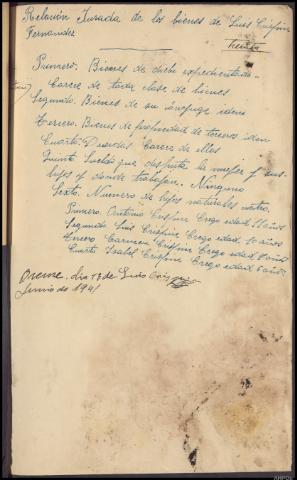 Relación Jurada de los bienes de Luis Crispine
Fernandez
Primero. Bienes de dicho expedientado-
Carece de toda clase de bienes
Segundo. Bienes de su cónyuge idem
Tercero. Bienes de propiedad de terceros idem
Cuarto. Deudas Carece de ellas
Quinto Sueldo que disfruta la mujer y sus
hijos y donde trabajan. Ninguno
Sexto. Numero de hijos naturales
Primero Antonio Crispine Crego edad 11 años
Segundo Luis Crispine Crego edad 10 años
Tercero Carmen Crispine Crego edad 8 años
Cuarto Isabel Crispine Crego edad 6 años
Orense, dia 13 de
Junio de 1941